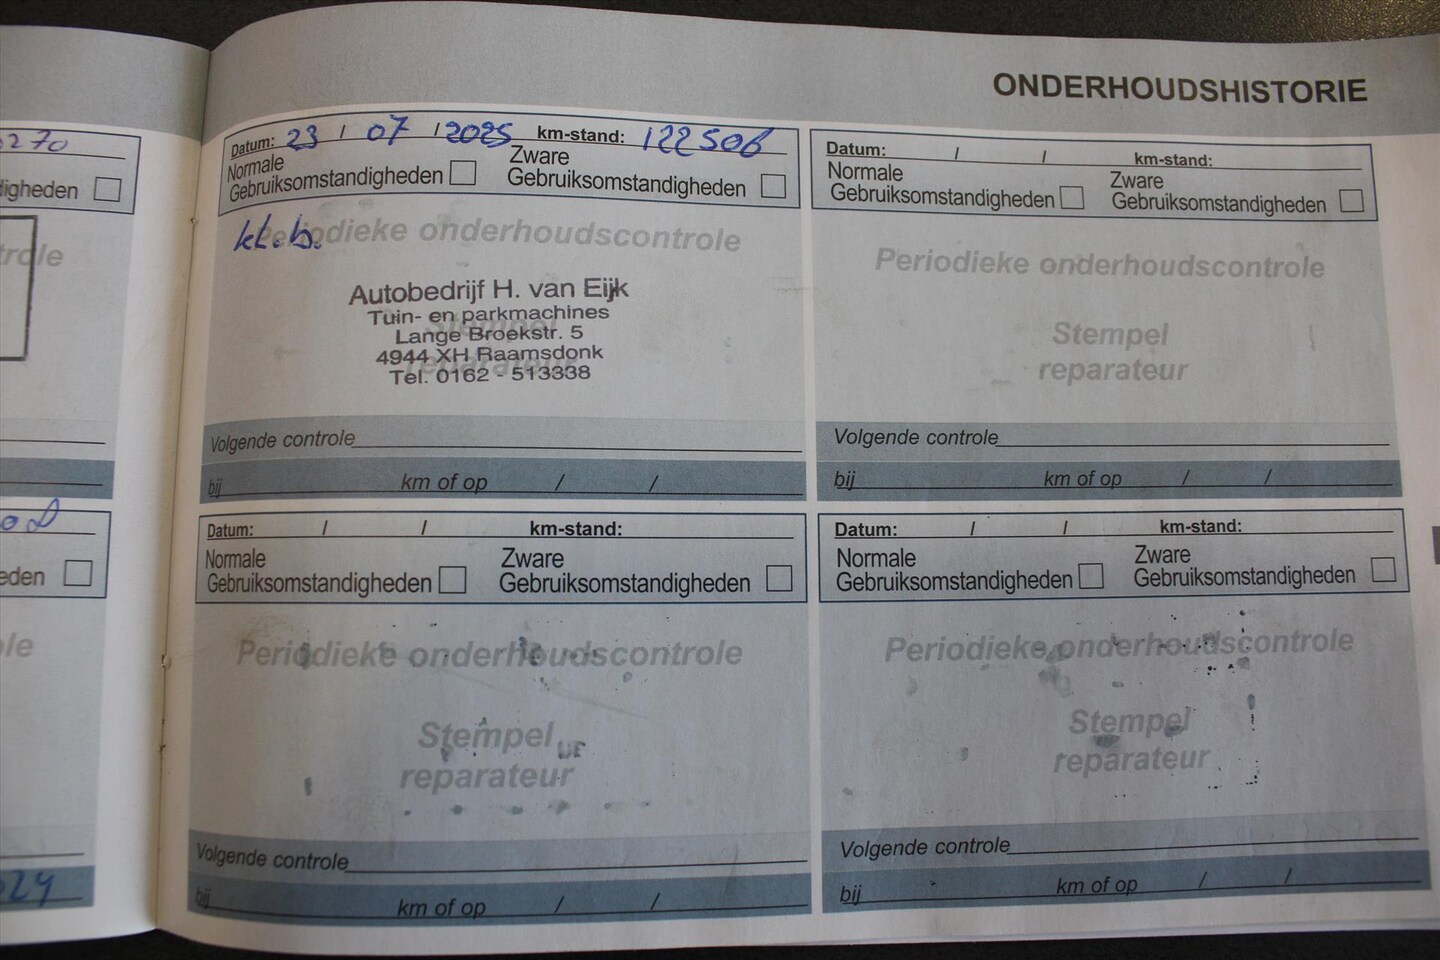 ONDERHOUDSHISTORIE
270
igheden
role
eden
le
24
Datum: 23 / 07 / 2025 km-stand: 122506
Normale Zware
Gebruiksomstandigheden Gebruiksomstandigheden
kl.b. Periodieke onderhoudscontrole
Autobedrijf H. van Eijk
Tuin- en parkmachines
Stempel
Lange Broekstr. 5
4944 XH Raamsdonk
reparateur
Tel. 0162 - 513338
Volgende controle
bij km of op / /
Datum: / / km-stand:
Normale Zware
Gebruiksomstandigheden Gebruiksomstandigheden
Periodieke onderhoudscontrole
Stempel
reparateur
Volgende controle
bij km of op / /
Datum: / / km-stand:
Normale Zware
Gebruiksomstandigheden Gebruiksomstandigheden
Periodieke onderhoudscontrole
Stempel
reparateur
Volgende controle
bij km of op / /
Datum: / / km-stand:
Normale Zware
Gebruiksomstandigheden Gebruiksomstandigheden
Periodieke onderhoudscontrole
Stempel
reparateur
Volgende controle
bij km of op / /